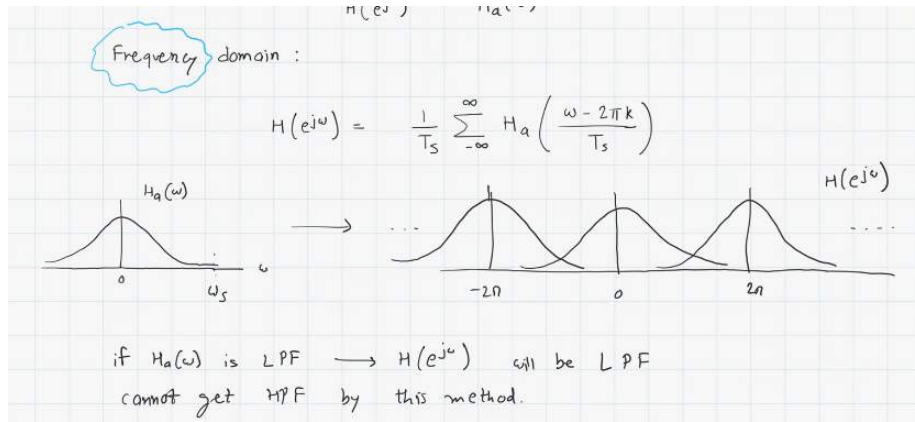 H(ej ) Ha(
Frequency domain :
H(e^jω) = 1/Ts ∑_{-∞}^{∞} Ha ( (ω - 2πk) / Ts )
Ha(ω)
H(e^jω)
... ....
0 ωs ω
-2π 0 2π
if Ha(ω) is LPF → H(e^jω) will be LPF
cannot get HPF by this method.